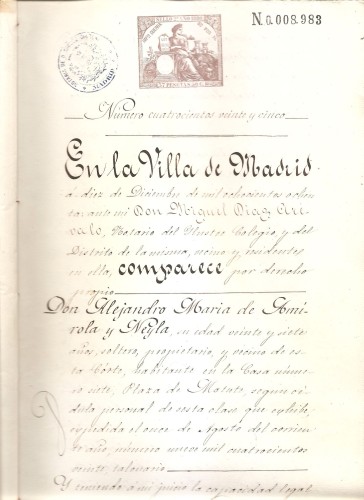 N.0.008.983
MADRID
Número cuatrocientos veinte y cinco
En la Villa de Madrid
á diez de Diciembre de mil ochocientos ochen
ta: ante mi Don Miguel Diaz Aré
valo, Notario del Ilustre Colegio, y del
Distrito de la misma, vecino y residente
en ella, comparece por derecho
propio
Don Alejandro Maria de Amí
rola y Neyla, su edad veinte y siete
años, soltero, propietario, y vecino de es
ta Córte, habitante en la Casa núme
ro siete, Plaza de Matute, segun cé
dula personal de esta clase que exhibe,
expedida el once de Agosto del corrien
te año, número nueve mil cuatrocientos
veinte, talonario
Y teniendo á mi juicio la capacidad legal